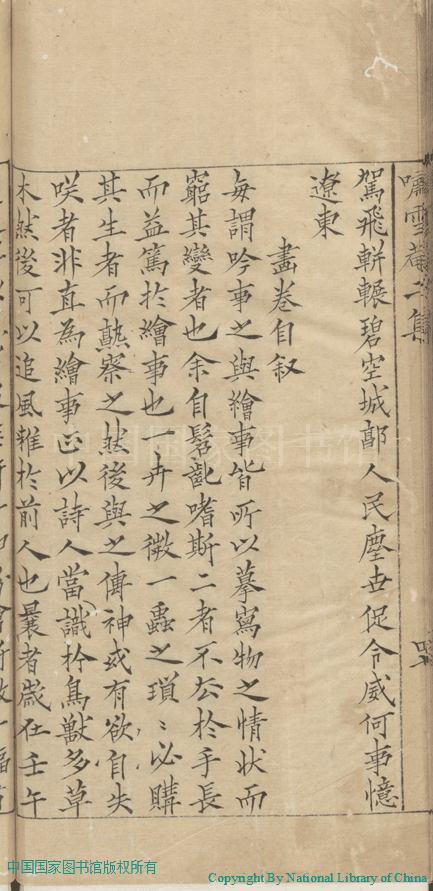 嘯雪菴二集
駕飛軿輾碧空城郭人民塵世促令威何事憶
遼東
畫卷自叙
每謂吟事之與繪事皆所以摹寫物之情狀而
窮其變者也余自髫齓嗜斯二者不厺於手長
而益篤於繪事也一卉之微一蟲之瑣〻必購
其生者而熟察之然後與之傳神或有欲自失
咲者非直為繪事正以詩人當識於鳥獸多草
木然後可以追風雅於前人也曩者歲在壬午
中国国家图书馆
中国国家图书馆版权所有
Copyright By National Library of China